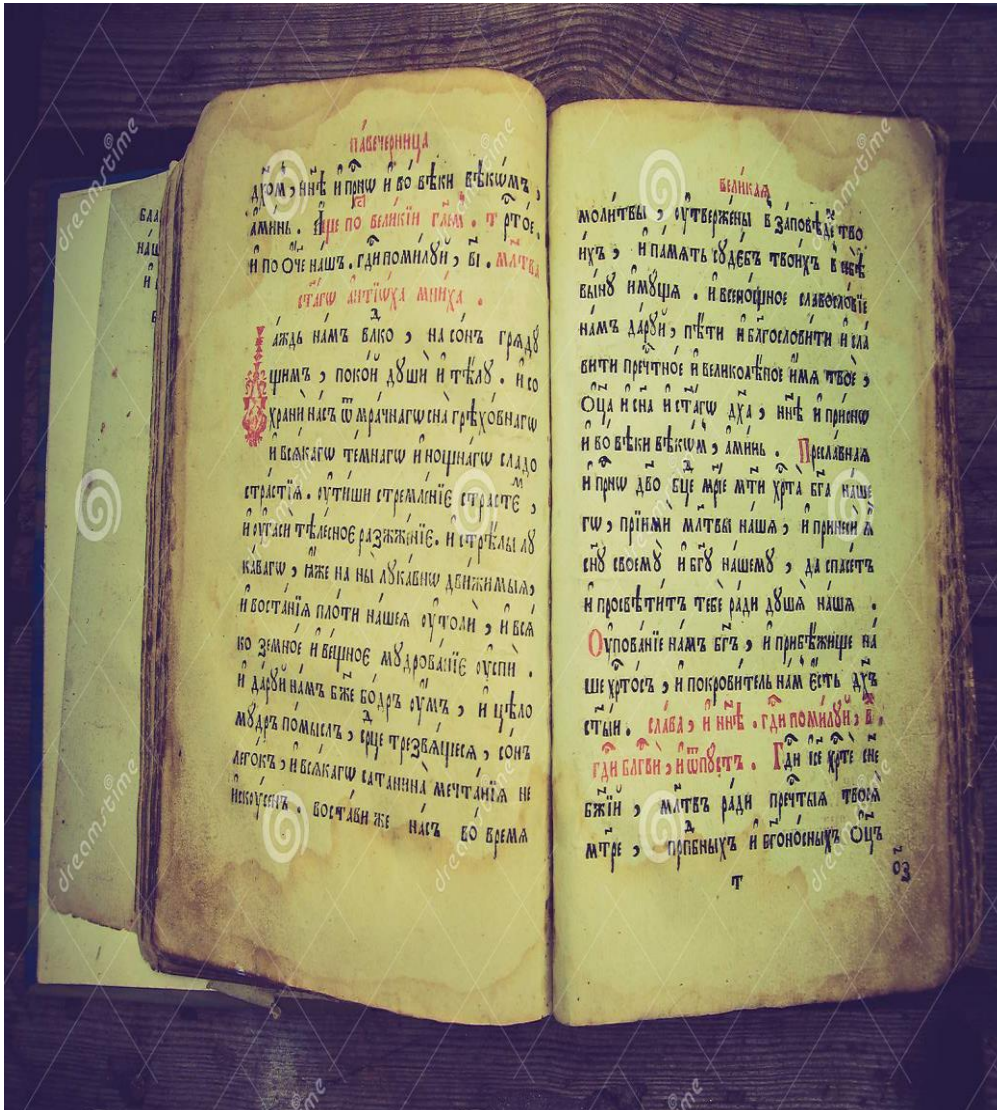 павечерница
дх҃ом, и҆ нн҃ѣ и҆ прⷭ҇нѡ и҆ во вѣки вѣкѡмъ,
а҆минь. по великїи гл҃ем. т рт҃ое.
и҆ по О҆ч҃е нашъ. гдⷭ҇и помилꙋй, в҃і. мл҃тва
ст҃агѡ а҆нтїѡха мниха.
даждь намъ влⷣко, на сонъ грядꙋ
щимъ, покой дꙋши и҆ тѣлꙋ. и҆ со
храни насъ ѿ мрачнагѡ сна грѣховнагѡ
и҆ всякагѡ темнагѡ и҆ нощнагѡ сладо
страстїя. ѹ҆тиши стремленїе страстеⷨ,
и҆ ѹ҆гаси тѣлесное разжженїе. и҆ стрѣлы лꙋ
кавагѡ, ꙗ҆же на ны лꙋкавнѡ движимыя,
и҆ востанїя плоти нашея ѹ҆толи, и҆ вся
ко земное и҆ вещное мꙋдрованїе ѹ҆спи.
и҆ дарꙋй намъ бж҃е бодръ ѹ҆мъ, и҆ цѣло
мꙋдръ помыслъ, срⷣце трезвящеся, сонъ
легокъ, и҆ всякагѡ сатанина мечтанїя не
искꙋсенъ. востави же насъ во время
великая
молитвы, ѹ҆твержены в заповѣдеⷯ тво
ихъ, и҆ память сꙋдебъ твоихъ в себѣ
вынꙋ и҆мꙋщя. и҆ всенощное славословїе
намъ дарꙋй, пѣти и҆ блг҃ословити и҆ сла
вити пречⷭ҇тное и҆ великолѣпое и҆мя твое,
О҆ц҃а и҆ сн҃а и҆ ст҃агѡ дх҃а, нн҃ѣ и҆ приснѡ
и҆ во вѣки вѣкѡм, а҆минь. Преславная
и҆ прⷭ҇нѡ дв҃о бц҃е мр҃іе мт҃и хрⷭ҇та бг҃а наше
гѡ, прїими мл҃твы нашя, и҆ принеси ꙗ҆
сн҃ꙋ своемꙋ и҆ бг҃ꙋ нашемꙋ, да спасетъ
и҆ просвѣтитъ тебе ради дꙋшя нашя.
Оу҆пованїе намъ бг҃ъ, и҆ прибѣжище на
ше хрⷭ҇тосъ, и҆ покровитель нам є҆сть дх҃ъ
ст҃ыи. слава, и҆ нн҃ѣ. гдⷭ҇и помилꙋй, г҃.
гдⷭ҇и блг҃ви, и҆ ѿпꙋстъ. Гдⷭ҇и і҆се хрⷭ҇те сн҃е
бж҃їи, мл҃твъ ради пречⷭ҇тыя твоея
мт҃ре, прпⷣбныхъ и҆ бг҃оносныхъ О҆ц҃ъ
т
о҃з